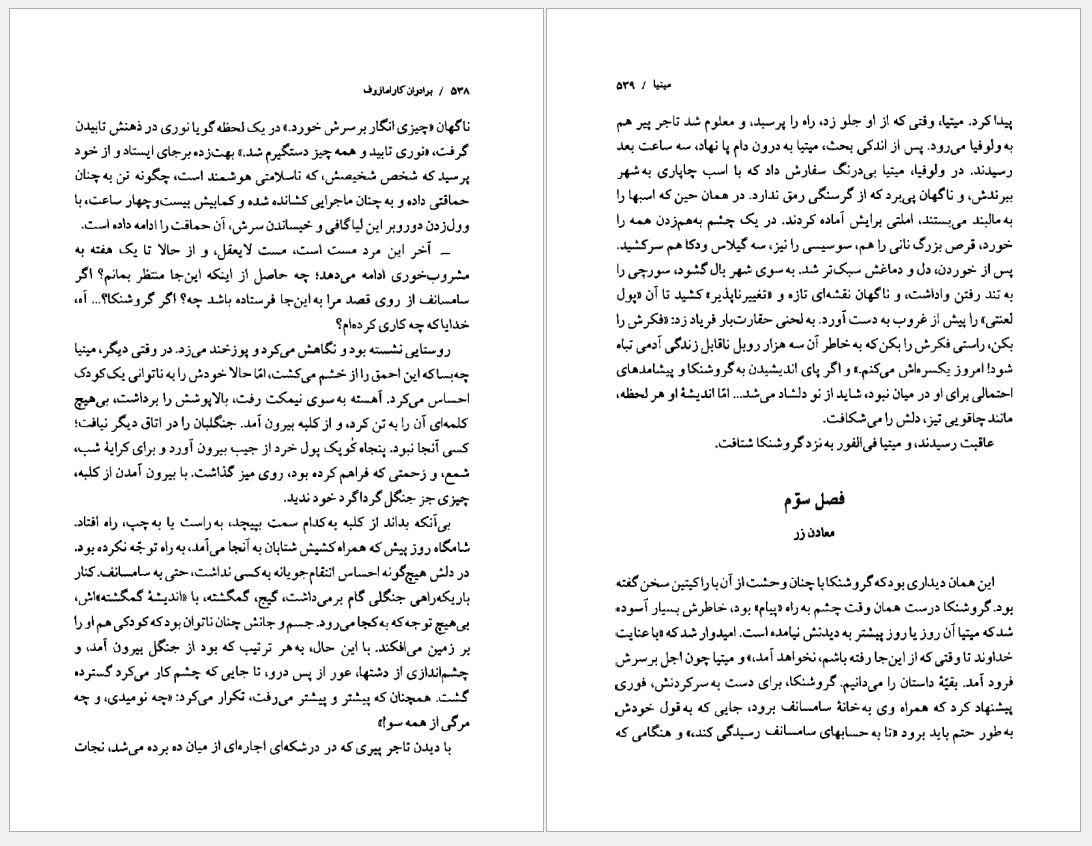 ۵۳۸ / برادران کارامازوف
ناگهان «چیزی انگار بر سرش خورد.» در یک لحظه گویا نوری در ذهنش تابیدن
گرفت، «نوری تابید و همه چیز دستگیرم شد.» بهت‌زده برجای ایستاد و از خود
پرسید که شخص شخیصش، که ناسلامتی هوشمند است، چگونه تن به چنان
حماقتی داده و به چنان ماجرایی کشانده شده و کمابیش بیست‌وچهار ساعت، با
وول‌زدن دوروبر این لیاگافی و خیساندن سرش، آن حماقت را ادامه داده است.
ــ آخر این مرد مست است، مست لایعقل، و از حالا تا یک هفته به
مشروب‌خوری ادامه می‌دهد؛ چه حاصل از اینکه این‌جا منتظر بمانم؟ اگر
سامسانف از روی قصد مرا به این‌جا فرستاده باشد چه؟ اگر گروشنکا؟... آه،
خدایا که چه کاری کرده‌ام؟
روستایی نشسته بود و نگاهش می‌کرد و پوزخند می‌زد. در وقتی دیگر، میتیا
چه‌بسا که این احمق را از خشم می‌کشت، امّا حالا خودش را به ناتوانی یک کودک
احساس می‌کرد. آهسته به سوی نیمکت رفت، بالاپوشش را برداشت، بی‌هیچ
کلمه‌ای آن را به تن کرد، و از کلبه بیرون آمد. جنگلبان را در اتاق دیگر نیافت؛
کسی آنجا نبود. پنجاه کُوپک پول خرد از جیب بیرون آورد و برای کرایهٔ شب،
شمع، و زحمتی که فراهم کرده بود، روی میز گذاشت. با بیرون آمدن از کلبه،
چیزی جز جنگل گرداگرد خود ندید.
بی‌آنکه بداند از کلبه به‌کدام سمت بپیچد، به‌راست یا به‌چپ، راه افتاد.
شامگاه روز پیش که همراه کشیش شتابان به آنجا می‌آمد، به راه توجّه نکرده بود.
در دلش هیچ‌گونه احساس انتقام‌جویانه به‌کسی نداشت، حتی به سامسانف. کنار
باریکه‌راهی جنگلی گام برمی‌داشت، گیج، گمگشته، با «اندیشهٔ گمگشته»اش،
بی‌هیچ توجه که به‌کجا می‌رود. جسم و جانش چنان ناتوان بود که کودکی هم او را
بر زمین می‌افکند. با این حال، به‌هر ترتیب که بود از جنگل بیرون آمد، و
چشم‌اندازی از دشتها، عور از پس درو، تا جایی که چشم کار می‌کرد گسترده
گشت. همچنان که پیشتر و پیشتر می‌رفت، تکرار می‌کرد: «چه نومیدی، و چه
مرگی از همه سو!»
با دیدن تاجر پیری که در درشکه‌ای اجاره‌ای از میان ده برده می‌شد، نجات
میتیا / ۵۳۹
پیدا کرد. میتیا، وقتی که از او جلو زد، راه را پرسید، و معلوم شد تاجر پیر هم
به ولوفیا می‌رود. پس از اندکی بحث، میتیا به درون دام پا نهاد، سه ساعت بعد
رسیدند. در ولوفیا، میتیا بی‌درنگ سفارش داد که با اسب چاپاری به‌شهر
ببرندش، و ناگهان پی‌برد که از گرسنگی رمق ندارد. در همان حین که اسبها را
به مالبند می‌بستند، املتی برایش آماده کردند. در یک چشم به‌هم‌زدن همه را
خورد، قرص بزرگ نانی را هم، سوسیسی را نیز، سه گیلاس ودکا هم سرکشید.
پس از خوردن، دل و دماغش سبک‌تر شد. به سوی شهر بال گشود، سورچی را
به تند رفتن واداشت، و ناگهان نقشه‌ای تازه و «تغییرناپذیر» کشید تا آن «پول
لعنتی» را پیش از غروب به دست آورد. به لحنی حقارت‌بار فریاد زد: «فکرش را
بکن، راستی فکرش را بکن که به خاطر آن سه هزار روبل ناقابل زندگی آدمی تباه
شود! امروز یکسره‌اش می‌کنم.» و اگر پای اندیشیدن به گروشنکا و پیشامدهای
احتمالی برای او در میان نبود، شاید از نو دلشاد می‌شد... امّا اندیشهٔ او هر لحظه،
مانند چاقویی تیز، دلش را می‌شکافت.
عاقبت رسیدند، و میتیا فی‌الفور به نزد گروشنکا شتافت.
فصل سوّم
معادن زر
این همان دیداری بود که گروشنکا با چنان وحشت از آن با راکیتین سخن گفته
بود. گروشنکا درست همان وقت چشم به راه «پیام» بود، خاطرش بسیار آسوده
شد که میتیا آن روز یا روز پیشتر به دیدنش نیامده است. امیدوار شد که «با عنایت
خداوند تا وقتی که از این‌جا رفته باشم، نخواهد آمد،» و میتیا چون اجل بر سرش
فرود آمد. بقیّهٔ داستان را می‌دانیم. گروشنکا، برای دست به سرکردنش، فوری
پیشنهاد کرد که همراه وی به‌خانهٔ سامسانف برود، جایی که به قول خودش
به طور حتم باید برود «تا به حسابهای سامسانف رسیدگی کند،» و هنگامی که